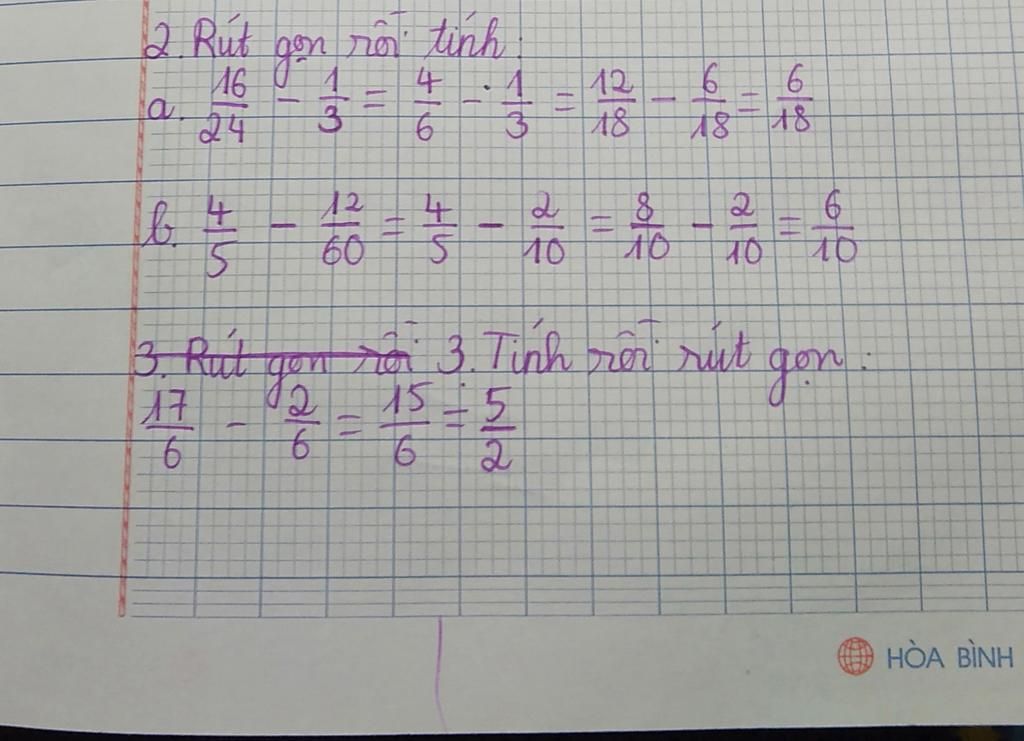 2. Rút gọn rồi tính:
a. 16/24 - 1/3 = 4/6 - 1/3 = 12/18 - 6/18 = 6/18
b. 4/5 - 12/60 = 4/5 - 2/10 = 8/10 - 2/10 = 6/10
3. Rút gọn rồi 3. Tính rồi rút gọn:
17/6 - 2/6 = 15/6 = 5/2
HÒA BÌNH